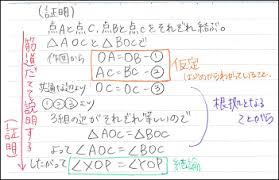 (証明)
点Aと点C、点Bと点Cをそれぞれ結ぶ。
△AOCと△BOCで
作図から OA=OB-①
AC=BC-②
仮定
はじめからわかっていること。
共通な辺より OC=OC-③
①②③より
3組の辺がそれぞれ等しいので
△AOC≡△BOC
よって ∠AOC=∠BOC
したがって ∠XOP=∠YOP 結論
根拠となることがら
筋道だてて説明する
(証明)